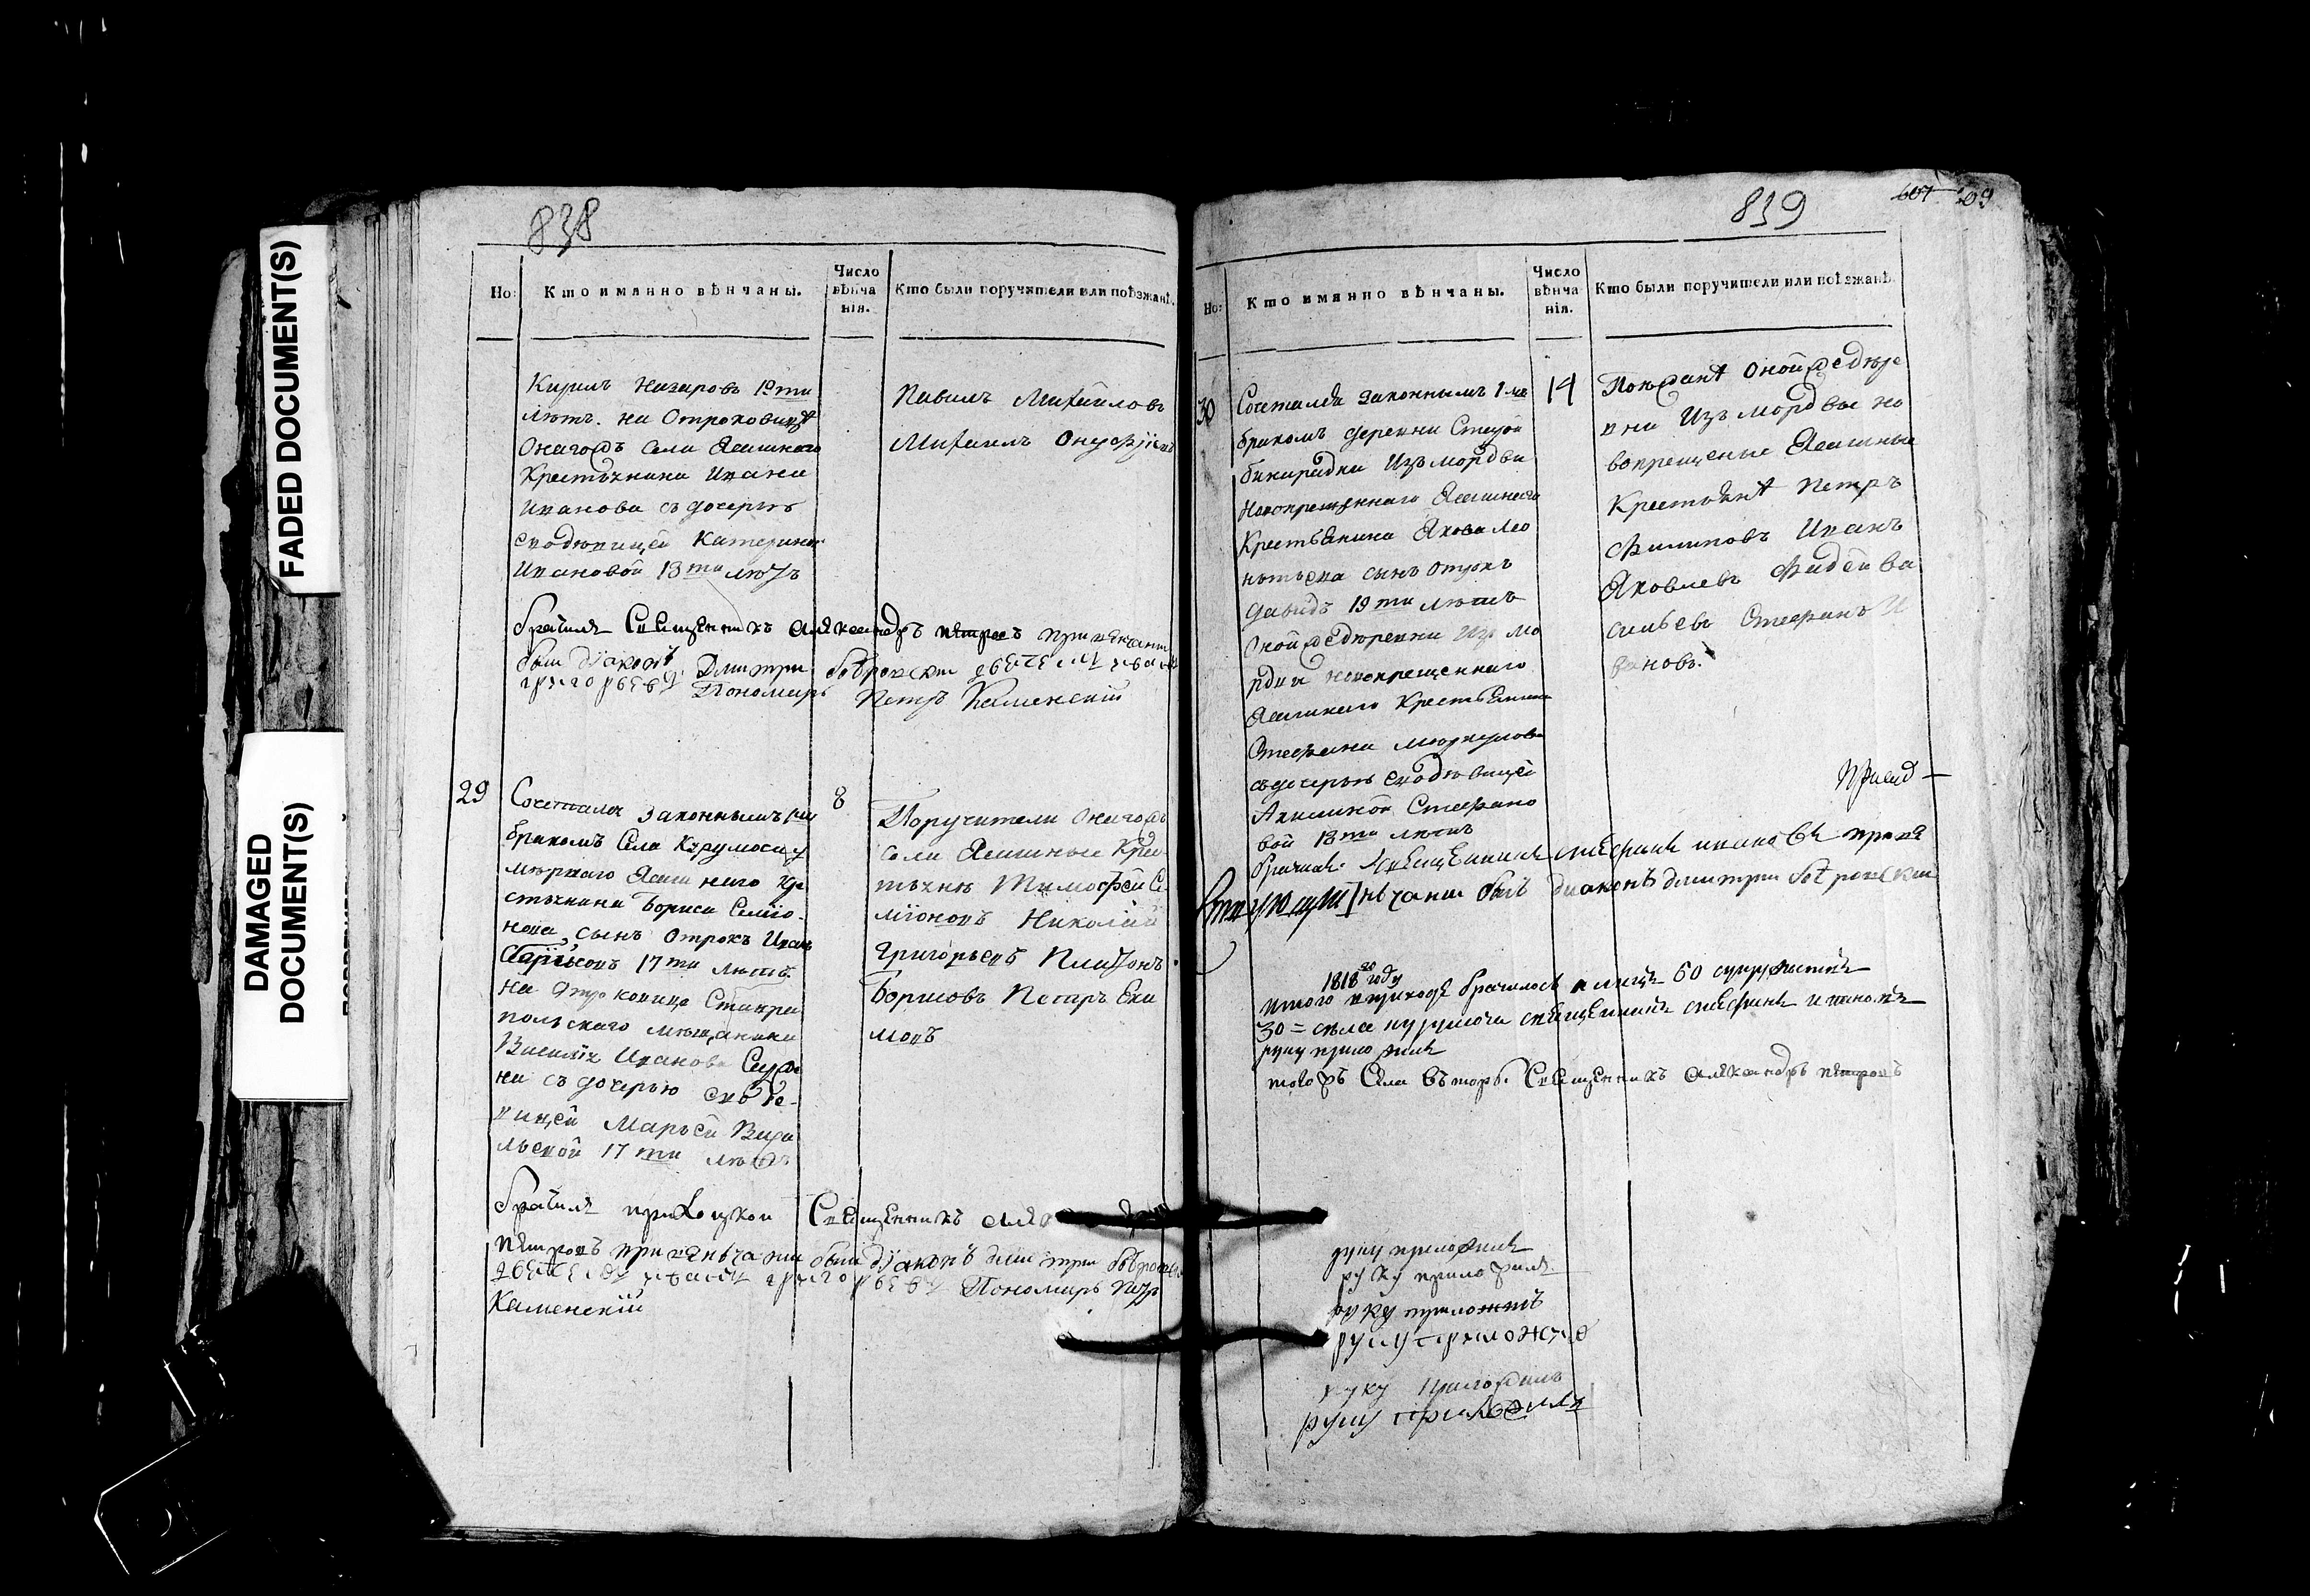 FADED DOCUMENT(S)
DAMAGED
DOCUMENT(S)
838
Но:
Кто имянно вѣнчаны.
Число
вѣнча
нія.
Кто были поручители или поѣзжанѣ.
Кирилъ Назаровъ
лѣтъ. на Отроковицѣ
Онагожъ села Ясашнаго
Крестьянина Ивана
Иванова съ дочерью
сводѣвицей Катериной
Ивановой 18 ти лѣтъ
Павилъ Михайловъ
Михаилъ Онуфрїевъ
брачилъ Священникъ Александръ петровъ при венчании
были дїаконъ Дмитри бобровски
григорьевъ Пономарь Петръ Каменскїй
29
Сочетался Законнымъ 1мъ
бракомъ Села Курумоча у
мершаго Ясашнаго кре
стьянина Бориса Семїо
нова, сынъ Отрокъ Иванъ
Борисовъ 17 ти лѣтъ.
на Отроковице Ставро
польскаго мѣщанина
Василїя Иванова
на съ дочерью сводѣ
вицей Марьей Васи
льевой 17 ти лѣтъ
8
Поручители Онагожъ
сели Ясашные Крес
тьянѣ Тимофей Се
мїоновъ Николай
Григорьевъ Платонъ
Борисовъ Петаръ Еки
мовъ
брачилъ приходской Священникъ
петровъ при венчании были дїаконъ дмитри бобровски
григорьевъ Пономарь Петръ
Каменскїй
839
607
Но:
Кто имянно вѣнчаны.
Число
вѣнча
нія.
Кто были поручители или поѣзжанѣ.
30
Сочетался законнымъ 1мъ
бракомъ деревни Старой
бинарадки Изъ мордвы
Новокрещеннаго Ясашнаго
Крестьянина Якова Лео
нтьева сынъ отрокъ
Давидъ 19 ти лѣтъ
Оной ж дѣревни Изъ мо
рдвы новокрещеннаго
Ясашнаго Крестьянина
Стефана Мѣркулова
съ дочерью сводѣвицей
Акилиной Стефано
вой 18 ти лѣтъ
14
Поѣзжанѣ Оной ж дѣре
вни Изъ мордвы но
вокрещеные Ясашные
Крестьянѣ Петръ
Филиповъ Иванъ
Яковлевъ Фадей Ва
сильевъ Стефанъ И
вановъ.
брачилъ священникъ стефанъ ивановъ при ве
нчании былъ диаконъ дмитри бобровский
1818 году
итого в приходе брачилось в лице 60 супружествъ
30 = села курумоча священникъ стефанъ ивановъ
руку приложилъ
тогожъ Села вторы Священникъ александръ петровъ
руку приложилъ
руку приложилъ
руку приложилъ
руку приложилъ
руку приложилъ
руку приложилъ